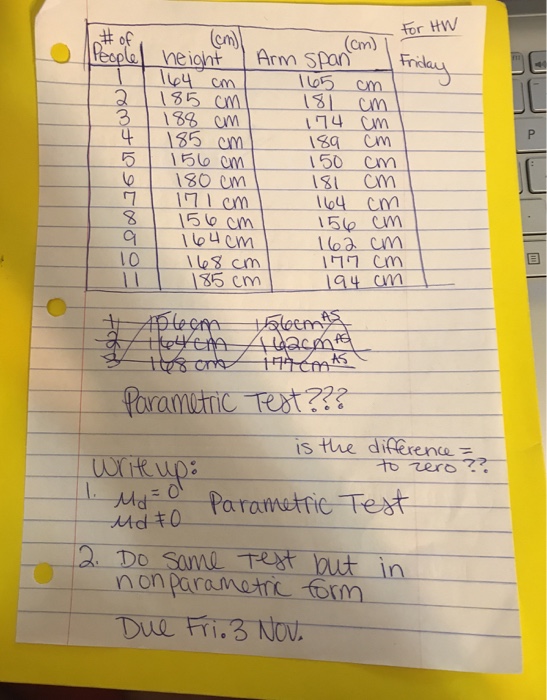 For HW
# of People height (cm) Arm span (cm) Friday
1 164 cm 165 cm
2 185 cm 181 cm
3 188 cm 174 cm
4 185 cm 189 cm
5 156 cm 150 cm
6 180 cm 181 cm
7 171 cm 164 cm
8 156 cm 156 cm
9 164 cm 162 cm
10 168 cm 177 cm
11 185 cm 194 cm
1 156cm 156cm AS
2 164 cm 162cm AS
3 168 cm 177 cm AS
Parametric Test???
is the difference =
to zero ??
Write up:
1. Md = 0 Parametric Test
Md ≠ 0
2. Do same test but in
nonparametric form
Due Fri. 3 Nov.
P